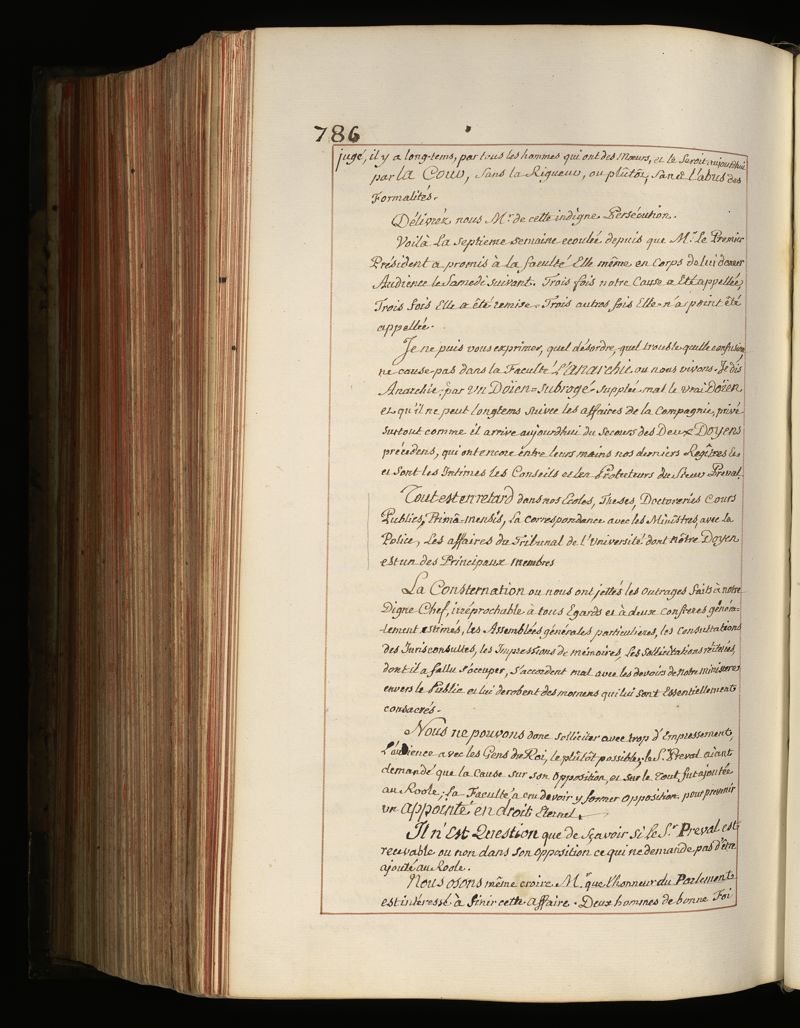 786
jugé, il y a long-tems, par tous les hommes qui ont des Mœurs, et le Seroit aujourd'hui
par la Cour, Sans la Rigueur, ou plûtôt, Sans L'abus des
Formalités.
Délivréz nous Mr. de cette indigne Persécution.
Voilà La Septieme Semaine ecoulée depuis que Mr. Le Premier
Président a promis à la faculté Elle même en Corps de lui doner
Audience le Samedi Suivant. Trois fois notre Cause a Eté appellée,
Trois fois Elle a été remise. Trois autres fois Elle n'a point été
appellée.
Je ne puis vous exprimer, quel désordre, quel trouble quelle confusion
ne cause pas dans la Faculté L'Anarchie ou nous vivons. Je dis
Anarchie; par Un Doïen=Subrogé Supplée mal le vrai Doïen
et qu'il ne peut longtems Suivre les affaires de la Compagnie, privé
Surtout comme il arrive aujourdhui du Secours des Deux Doyens
précedens, qui ont encore entre leurs mains nos derniers Regîtres &c
et Sont les Intimes les Conseils et les Protecteurs du Sieur Preval.
Tout est en retard dans nos Ecoles, Theses, Doctoreries Cours
Publics, Primâ-mensis, La correspondance avec les Ministres, avec la
Police, Les affaires du Tribunal de l'Université dont nôtre Doyen
est un des Principaux membres
La Consternation ou nous ont jettés les Outrages faits à notre
Digne Chef, irréprochable à tous Egards et à deux Confreres généra-
-lement estimés, les Assemblées générales particulieres, les Consultations
des Jurisconsultes, les Impressions de mémoires, Les Sollicitations réitérées,
dont il a fallu S'occuper, S'accordent mal avec les devoirs de notre ministere
envers le Public et lui derobent des momens qui lui Sont Essentiellement
consacrés.
Nous ne pouvons donc Solliciter avec trop d'Empressement,
L'audience avec les Gens du Roi, le plûtôt possible; le Sr. Preval aïant
demandé que la Cause Sur Son Opposition, et Sur le tout fut ajoutée
au Roole; la Faculté a cru devoir y former Opposition pour prevenir
un appointé en droit Eternel.
Il n'Est Question que de Sçavoir Si le Sr. Preval est
recevable ou non dans Son Opposition ce qui ne demande pas d'être
ajouté au Roole.
Nous osons même croire Mr. que l'honneur du Parlement
est intéressé à finir cette affaire. Deux hommes de bonne Foi